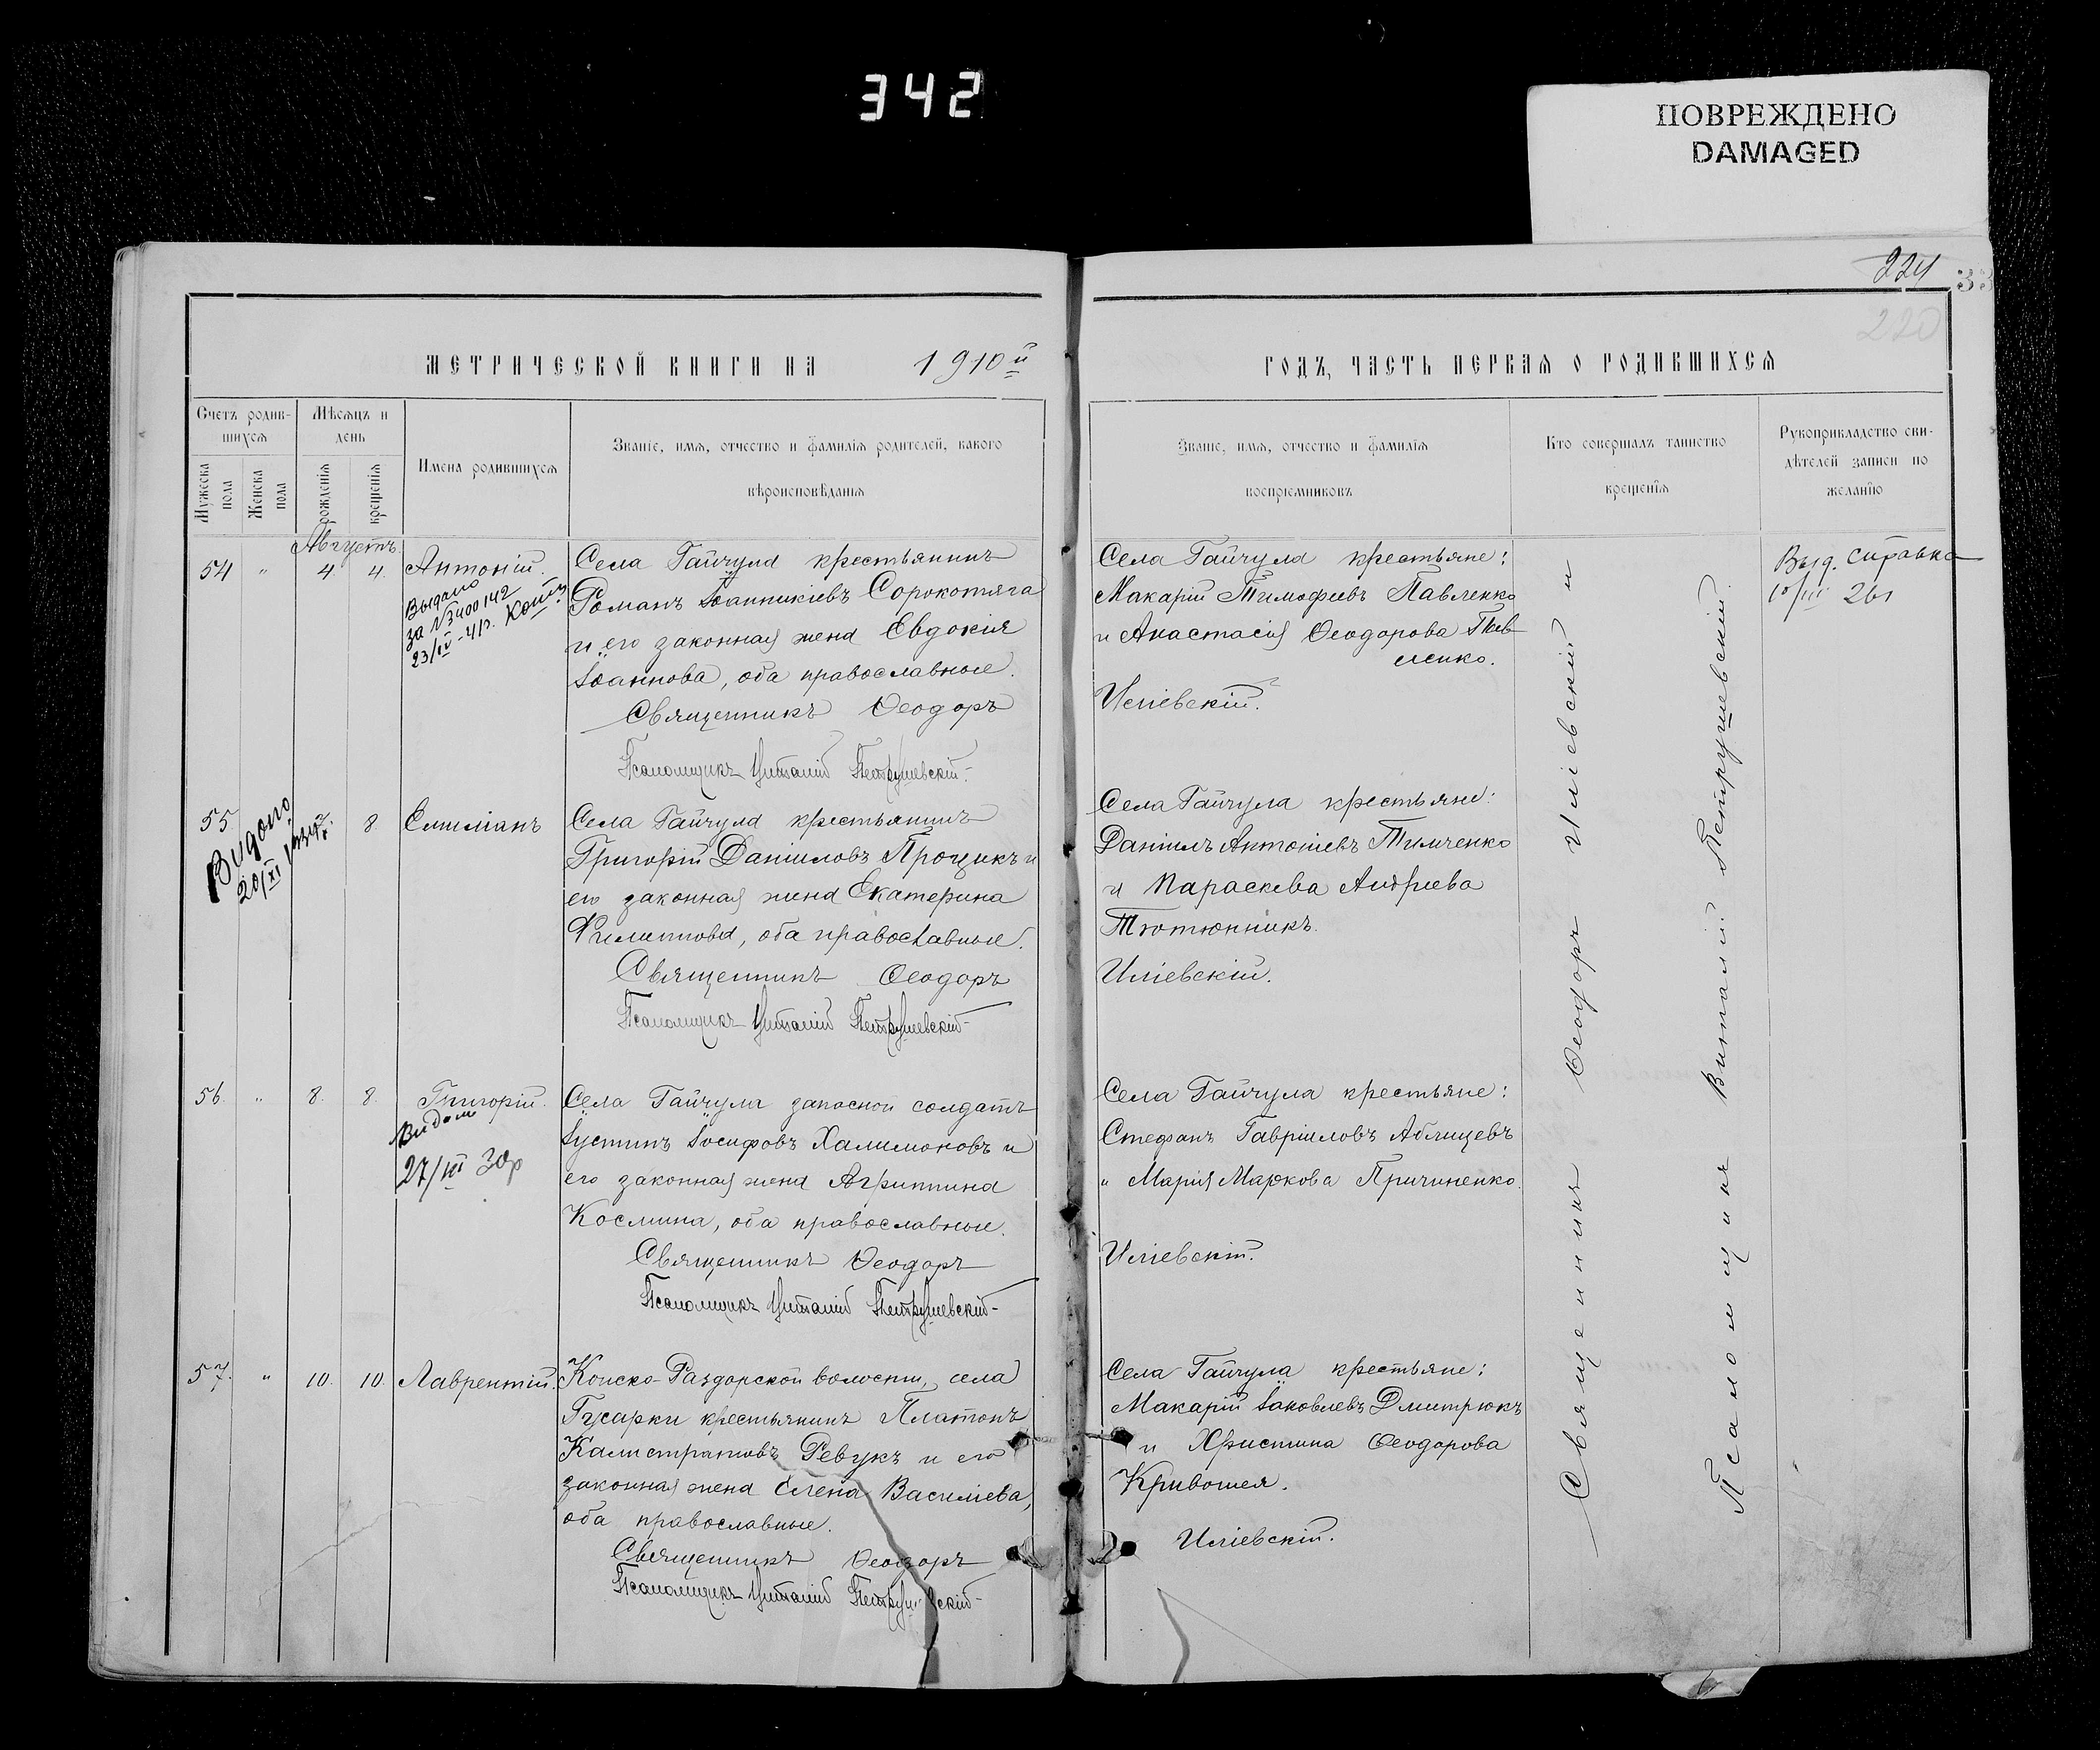 342
ПОВРЕЖДЕНО
DAMAGED
224
33
220
МЕТРИЧЕСКОЙ КНИГИ НА 1910й
Счетъ родив-
шихся
Мѣсяцъ и
день
Мужеска
пола
Женска
пола
рожденія
крещенія
Имена родившихся
Званіе, имя, отчество и фамилія родителей, какого
вѣроисповѣданія
Августъ
54 " 4. 4. Антоній.
Выдано
за №
23/IV-41г. Копія
Села Гайчула крестьянинъ
Романъ Іоанникіевъ Сорокотяга
и его законная жена Евдокія
Іоаннова, оба православные.
Священникъ Ѳеодоръ
Псаломщикъ Виталій Петрушевскій.
55 8 Емиліанъ
Видано
20/XI
Села Гайчула крестьянинъ
Григорій Даніиловъ Процикъ и
его законная жена Екатерина
Филиппова, оба православные.
Священникъ Ѳеодоръ
Псаломщикъ Виталій Петрушевскій
56. " 8. 8. Григорій.
Видано
27/III 30р
Села Гайчула запасной солдатъ
Іустинъ Іосифовъ Халимоновъ и
его законная жена Агриппина
Космина, оба православные.
Священникъ Ѳеодоръ
Псаломщикъ Виталій Петрушевскій
57. " 10. 10. Лаврентій.
Конско-Раздорской волости, села
Гусарки крестьянинъ Платонъ
Калистратовъ Ревукъ и его
законная жена Елена Василіева,
оба православные.
Священникъ Ѳеодоръ
Псаломщикъ Виталій Петрушевскій
ГОДЪ, ЧАСТЬ ПЕРВАЯ О РОДИВШИХСЯ
Званіе, имя, отчество и фамилія
воспріемниковъ
Кто совершалъ таинство
крещенія
Рукоприкладство сви-
дѣтелей записи по
желанію
Села Гайчула крестьяне:
Макарій Тимофеевъ Павленко
и Анастасія Ѳеодорова Пав-
ленко.
Иліевскій.
Села Гайчула крестьяне:
Даніилъ Антоніевъ Тимченко
и Параскева Андреева
Тютюнникъ.
Иліевскій.
Села Гайчула крестьяне:
Стефанъ Гавріиловъ Аблицевъ
и Марія Маркова Причиненко.
Иліевскій.
Села Гайчула крестьяне:
Макарій Іаковлевъ Дмитрюкъ
и Христина Ѳеодорова
Кривошея.
Иліевскій.
Священникъ Ѳеодоръ Иліевскій и
Псаломщикъ Виталій Петрушевскій.
Выд. справка
10/III 26г